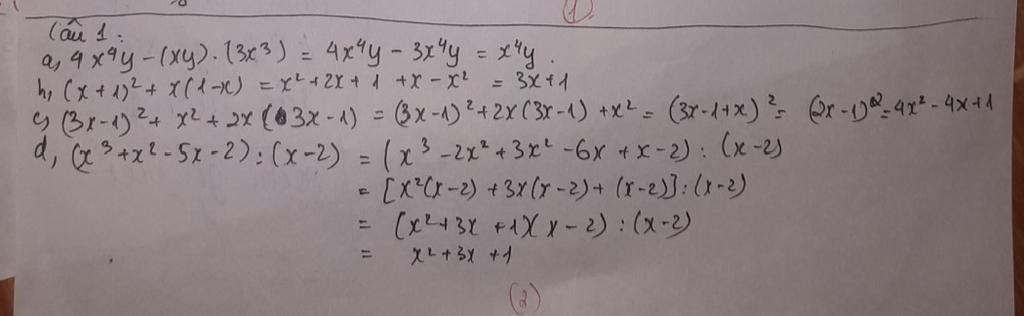 (1)
Câu 1:
a, 4x⁴y - (xy).(3x³) = 4x⁴y - 3x⁴y = x⁴y.
b, (x+1)² + x(1-x) = x² + 2x + 1 + x - x² = 3x+1
c, (3x-1)² + x² + 2x(3x-1) = (3x-1)² + 2x(3x-1) + x² = (3x-1+x)² = (2x-1)² = 4x² - 4x+1
d, (x³ + x² - 5x - 2) : (x-2) = (x³ - 2x² + 3x² - 6x + x - 2) : (x-2)
= [x²(x-2) + 3x(x-2) + (x-2)] : (x-2)
= (x² + 3x + 1)(x-2) : (x-2)
= x² + 3x + 1
(2)